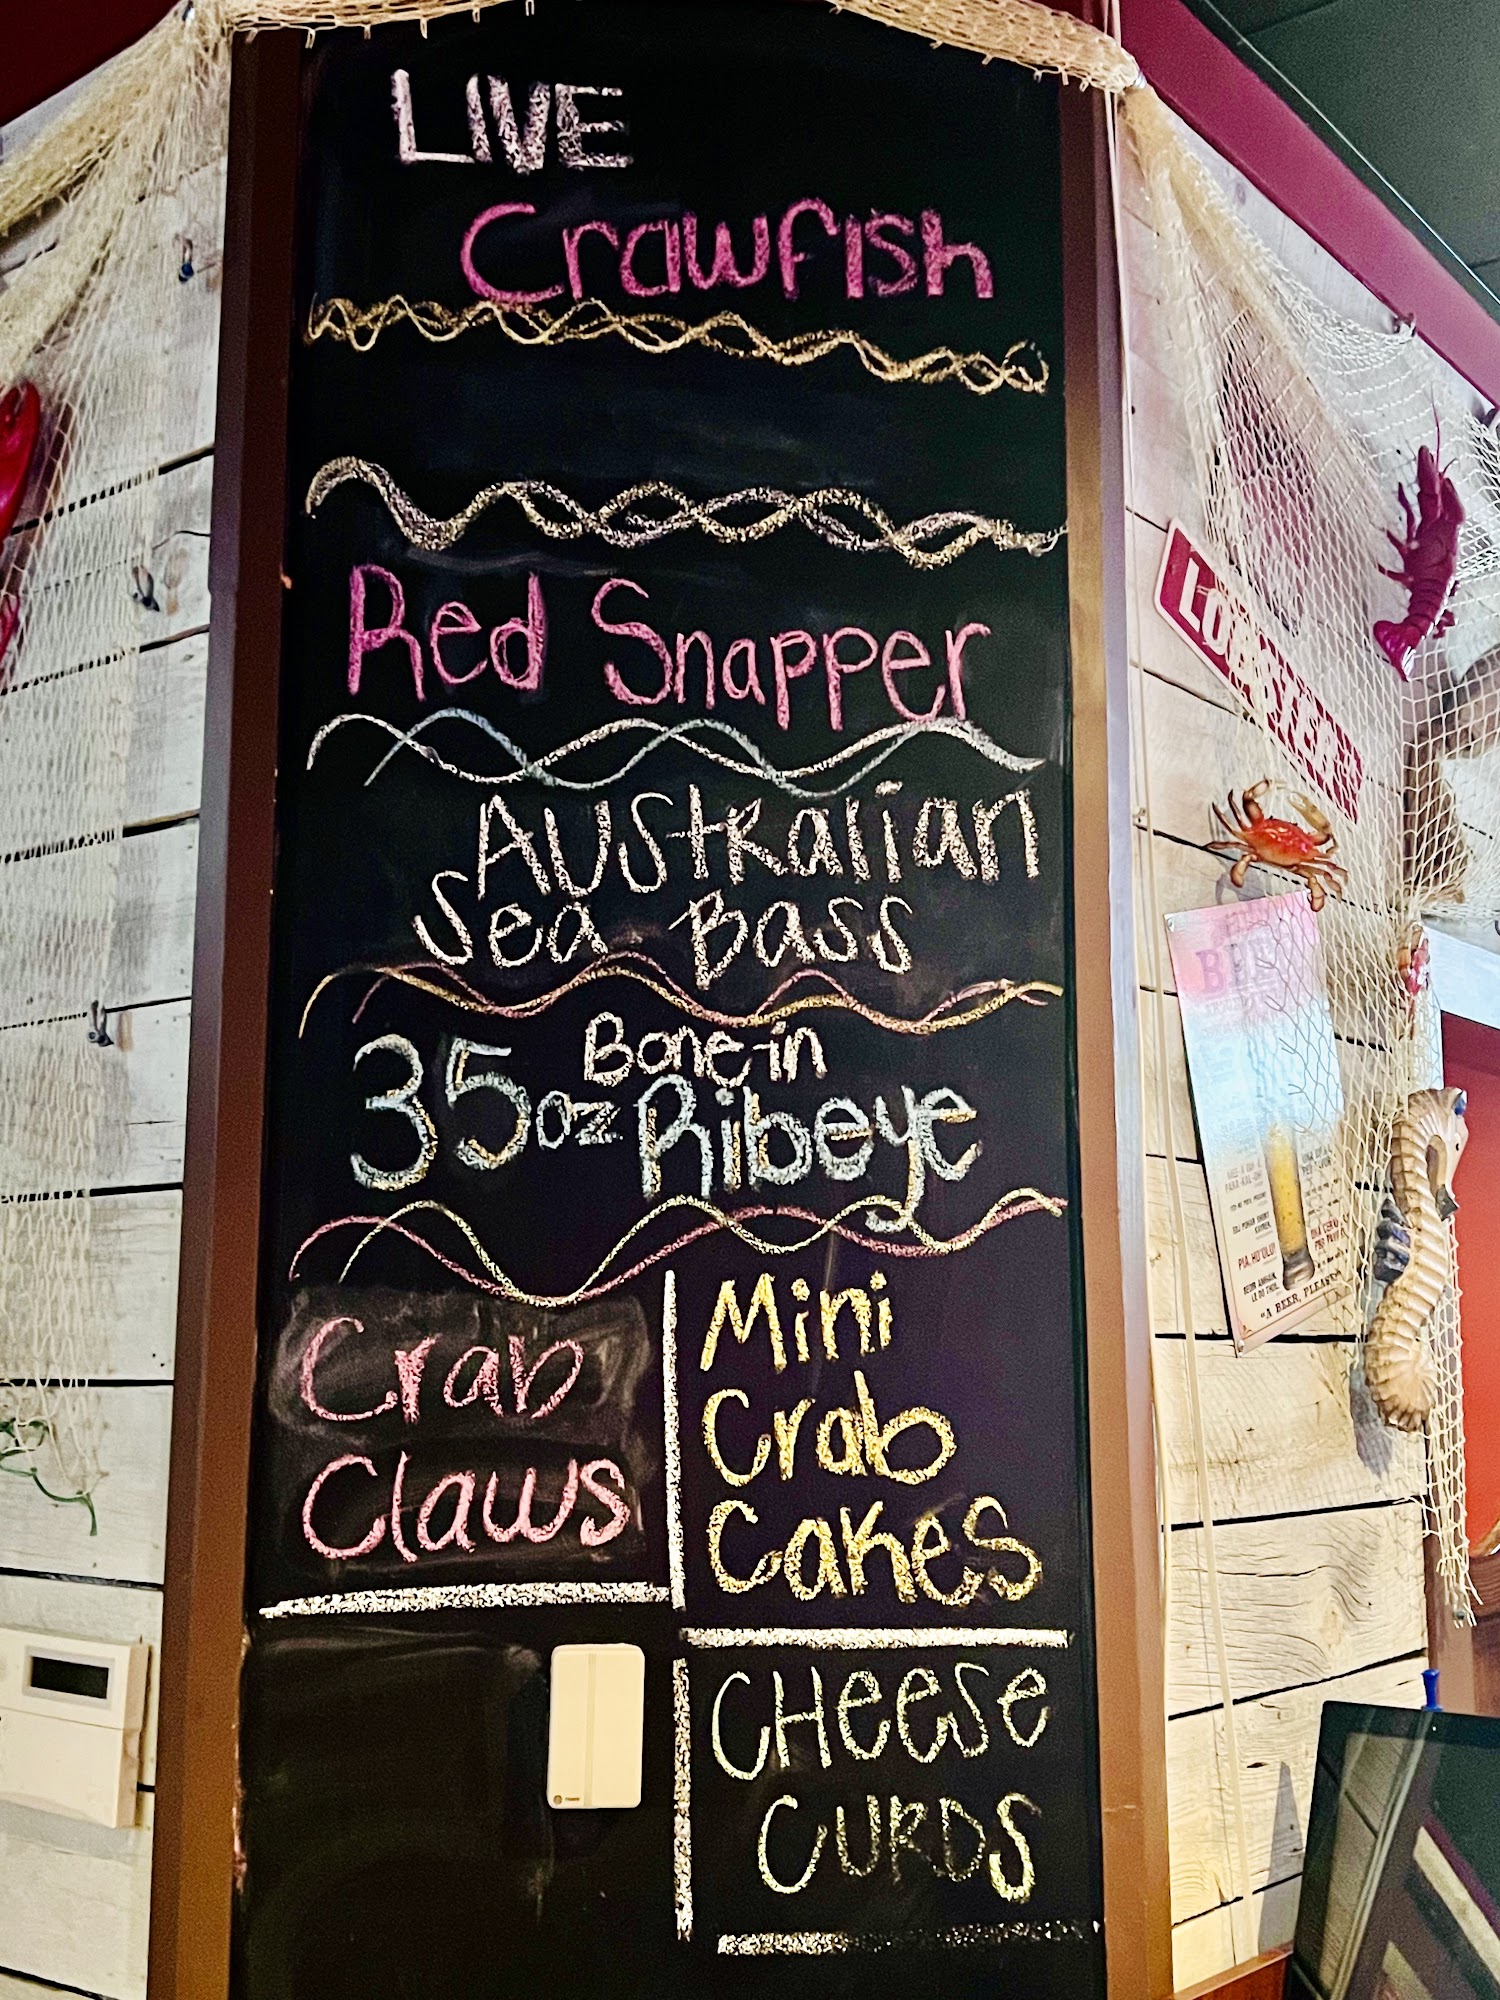 LIVE
Crawfish
Red Snapper
Australian
Sea Bass
35oz Bone-in
Ribeye
Crab
Claws
Mini
Crab
Cakes
CHeese
CURDS
LOBSTER
BEER
PIA.HU'OLU!
"A BEER, PLEASE"